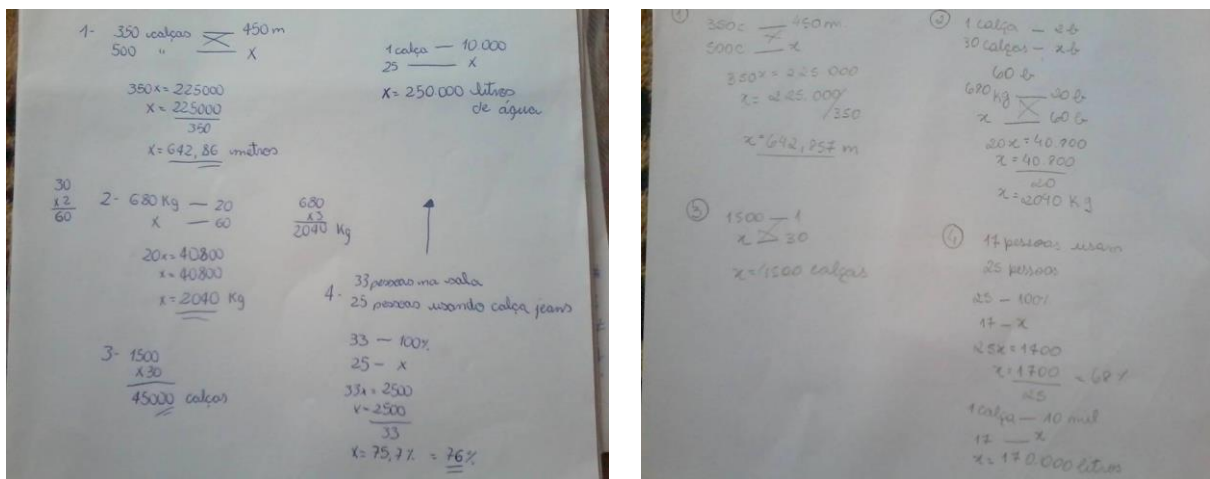 1- 350 calças — 450 m
500 " — X
350x = 225000
x = 225000
350
x = 642,86 metros
1 calça — 10.000
25 — X
X = 250 000 litros
de água
30
x2
60
2- 680 Kg — 20
X — 60
20x = 40800
x = 40800
x = 2040 Kg
680
x3
2040 Kg
3- 1500
x30
45000 calças
4- 33 pessoas na sala
25 pessoas usando calça jeans
33 — 100%
25 — X
33x = 2500
x = 2500
33
X = 75,7% = 76%
1
350c — 450m
500c — x
350x = 225.000
x = 225.000/350
x = 642,857 m
2
1 calça — 2b
30 calças — xb
60 b
680 kg — 20 b
x — 60 b
20x = 40.800
x = 40.800
20
x = 2040 Kg
3
1500 — 1
x 30
x = 1500 calças
4
17 pessoas usam
25 pessoas
25 — 100%
17 — x
25x = 1700
x = 1700 = 68%
25
1 calça — 10 mil
17 — x
x = 170.000 litros